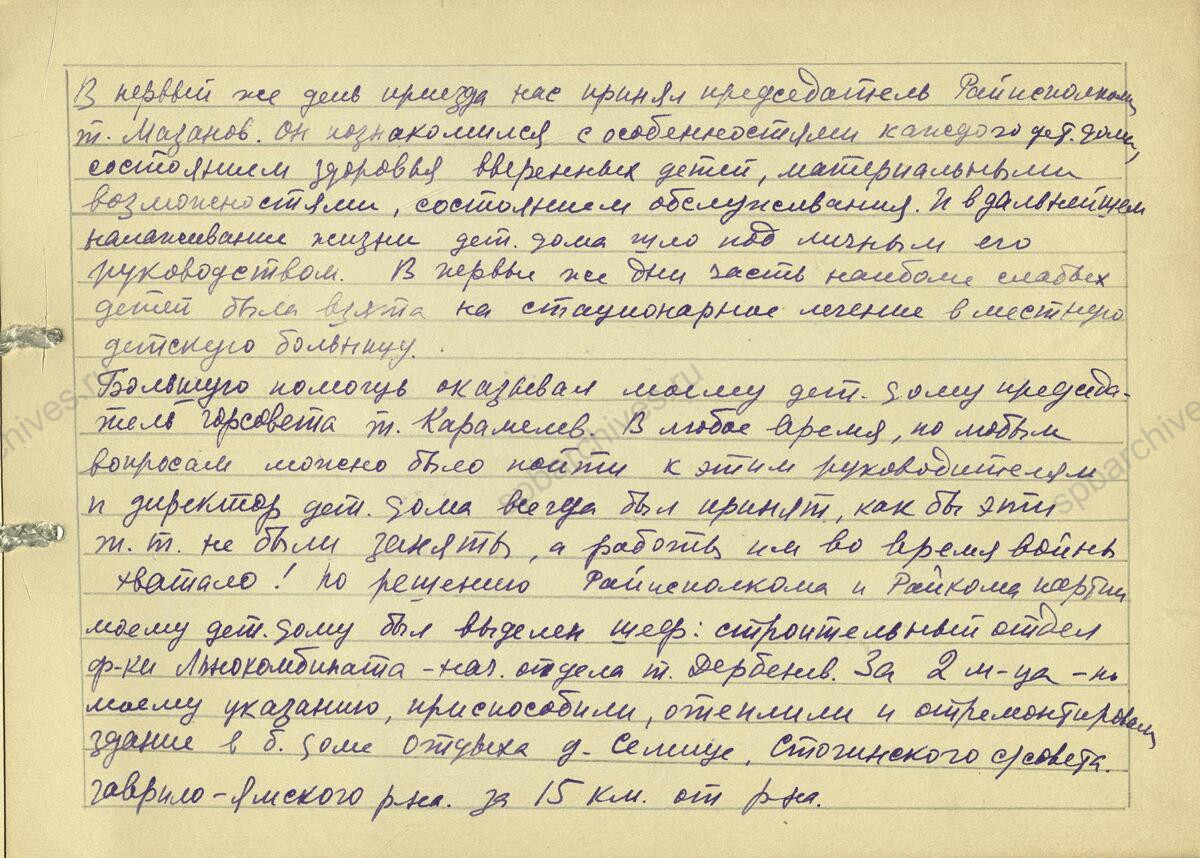 В первый же день приезда нас принял председатель Райисполкома
т. Мазанов. Он познакомился с особенностями каждого дет. дома,
состоянием здоровья вверенных детей, материальными
возможностями, состоянием обслуживания. И в дальнейшем
налаживание жизни дет. дома шло под личным его
руководством. В первые же дни часть наиболее слабых
детей была взята на стационарное лечение в местную
детскую больницу.
Большую помощь оказывал моему дет. дому председа-
тель горсовета т. Карамелев. В любое время, по любым
вопросам можно было пойти к этим руководителям
и директор дет. дома всегда был принят, как бы эти
т.т. не были заняты, а работы им во время войны
хватало! По решению Райисполкома и Райкома партии
моему дет. дому был выделен шеф: строительный отдел
ф-ки Льнокомбината - нач. отдела т. Дербенев. За 2 м-ца - по
моему указанию, приспособили, отеплили и отремонтировали
здание в б. доме отдыха д. Селище, Стогинского с/совета.
Гаврило-Ямского р-на. за 15 км. от р-на.
spbarchives.ru
spbarchives.ru
spbarchives